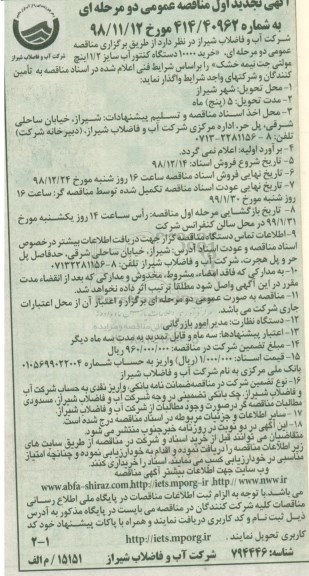 آگهی تجدید اول مناقصه عمومی دو مرحله ای
به شماره ۴۱۴/۴۰۹۶۲ مورخ ۹۸/۱۱/۱۲
شرکت آب و فاضلاب شیراز
شرکت آب و فاضلاب شیراز در نظر دارد از طریق برگزاری مناقصه
عمومی دو مرحله ای، «خرید ۱۰۰۰۰ دستگاه کنتور آب سایز ۱/۲ اینچ
مولتی جت نیمه خشک» را براساس شرایط فنی اعلام شده در اسناد مناقصه به تأمین
کنندگان و شرکتهای واجد شرایط واگذار نماید:
۱- محل تحویل: شهر شیراز
۲- مدت تحویل: ۵ (پنج) ماه
۳- محل اخذ اسناد مناقصه و تسلیم پیشنهادات: شیراز، خیابان ساحلی
شرقی، پل حر، اداره مرکزی شرکت آب و فاضلاب شیراز، (دبیرخانه شرکت)
تلفن: ۸-۳۲۲۸۱۱۵۶-۰۷۱۳
۴- برآورد اولیه: اعلام نمی گردد.
۵- تاریخ شروع فروش اسناد: ۹۸/۱۲/۱۴
۶- تاریخ نهایی فروش اسناد مناقصه ساعت ۱۶ روز شنبه مورخ ۹۸/۱۲/۲۴
۷- تاریخ نهایی عودت اسناد مناقصه تکمیل شده توسط مناقصه گر: ساعت ۱۶
روز شنبه مورخ ۹۹/۱/۳۰
۸- تاریخ بازگشایی مرحله اول مناقصه: رأس ساعت ۱۴ روز یکشنبه مورخ
۹۹/۱/۳۱ در محل سالن کنفرانس شرکت
۹- اطلاعات تماس دستگاه مناقصه گزار جهت دریافت اطلاعات بیشتر در خصوص
اسناد مناقصه و عودت اسناد: آدرس: شیراز، خیابان ساحلی شرقی، حدفاصل پل
حر و پل هجرت، شرکت آب و فاضلاب شیراز، تلفن: ۸-
۱۰- به مدارکی که فاقد امضاء، مشروط، مخدوش و مدارکی که بعد از انقضاء مدت
مقرر در این آگهی واصل شود مطلقا ترتیب اثر داده نخواهد شد.
۱۱- مناقصه به صورت عمومی دو مرحله ای برگزار و اعتبار آن از محل اعتبارات
جاری شرکت می باشد.
۱۲- دستگاه نظارت: مدیر امور بازرگانی
۱۳- اعتبار پیشنهادها: سه ماه و قابل تمدید به مدت سه ماه دیگر
۱۴- مبلغ تضمین شرکت در مناقصه: ۹۶۰/۰۰۰/۰۰۰ ریال
۱۵- قیمت اسناد: ۱/۰۰۰/۰۰۰ (ریال) واریز به حساب شماره ۰۱۰۵۶۹۹۰۲۲۰۰۴
بانک ملی مرکزی به نام شرکت آب و فاضلاب شیراز
۱۶- نوع تضمین شرکت در مناقصه: ضمانت نامه بانکی، واریز نقدی به حساب شرکت آب
و فاضلاب شیراز، چک بانکی تضمینی در وجه شرکت آب و فاضلاب شیراز، مسدودی
مطالبات مناقصه گر در صورت وجود مطالبات از شرکت آب و فاضلاب شیراز.
۱۷- سایر اطلاعات و جزئیات مربوطه در اسناد مناقصه درج شده است.
۱۸- این آگهی در دو نوبت در روزنامه خبرجنوب منتشر می شود.
متقاضیان می توانند قبل از خرید اسناد و شرکت در مناقصه از طریق سایت های
زیر اطلاعات مناقصه را دریافت نموده و اقدام به خودارزیابی نموده و چنانچه امتیاز
مناسبی در خودارزیابی کسب می نمایند اسناد را خریداری کنند.
وب سایت جهت اطلاعات بیشتر آگهی مناقصه
www.abfa-shiraz.com http://iets.mporg-ir http:// www.nww.ir
می باشد. با توجه به الزام ثبت اطلاعات مناقصات در پایگاه ملی اطلاع رسانی
مناقصات کلیه شرکت کنندگان در مناقصه می بایست در پایگاه مذکور به آدرس
ذیل ثبت نام و کد کاربری دریافت نمایند و همراه با پاکات پیشنهاد خود کد
کاربری تحویل نمایند. http://iets.mporg.ir ۲-۱
شناسه: ۷۹۴۴۴۶ شرکت آب و فاضلاب شیراز ۱۵۱۵۱/ م الف